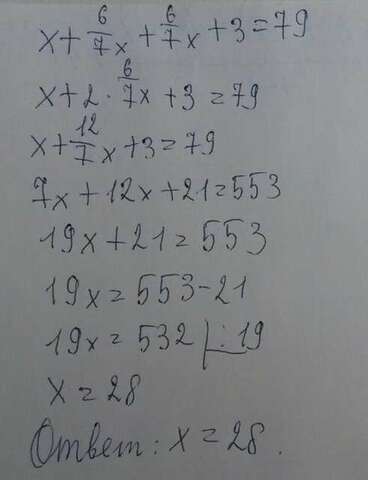 x + 6/7 x + 6/7 x + 3 = 79
x + 2 · 6/7 x + 3 = 79
x + 12/7 x + 3 = 79
7x + 12x + 21 = 553
19x + 21 = 553
19x = 553 - 21
19x = 532 | : 19
x = 28
Ответ: x = 28.